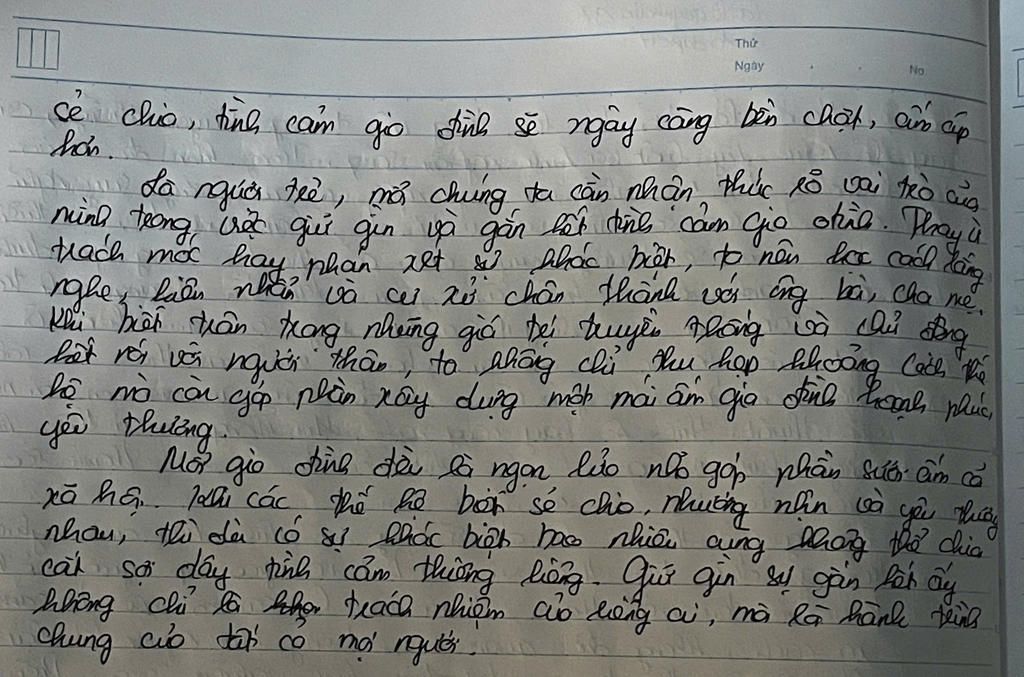 Thứ
Ngày No
sẻ chia, tình cảm gia đình sẽ ngày càng bền chặt, ấm áp
hơn.
Là người trẻ, mỗi chúng ta cần nhận thức rõ vai trò của
mình trong việc giữ gìn và gắn kết tình cảm gia đình. Thay vì
trách móc hay phán xét sự khác biệt, ta nên học cách lắng
nghe, kiên nhẫn và cư xử chân thành với ông bà, cha mẹ.
Khi biết trân trọng những giá trị truyền thống và chủ động
kết nối với người thân, ta không chỉ thu hẹp khoảng cách thế
hệ mà còn góp phần xây dựng một mái ấm gia đình hạnh phúc,
yêu thương.
Mỗi gia đình đều là ngọn lửa nhỏ góp phần sưởi ấm cả
xã hội. Khi các thế hệ biết sẻ chia, nhường nhịn và yêu thương
nhau, thì dù có sự khác biệt bao nhiêu cung không thể chia
cắt sợi dây tình cảm thiêng liêng. Giữ gìn sự gắn kết ấy
không chỉ là trách nhiệm của riêng ai, mà là hành trình
chung của tất cả mọi người.